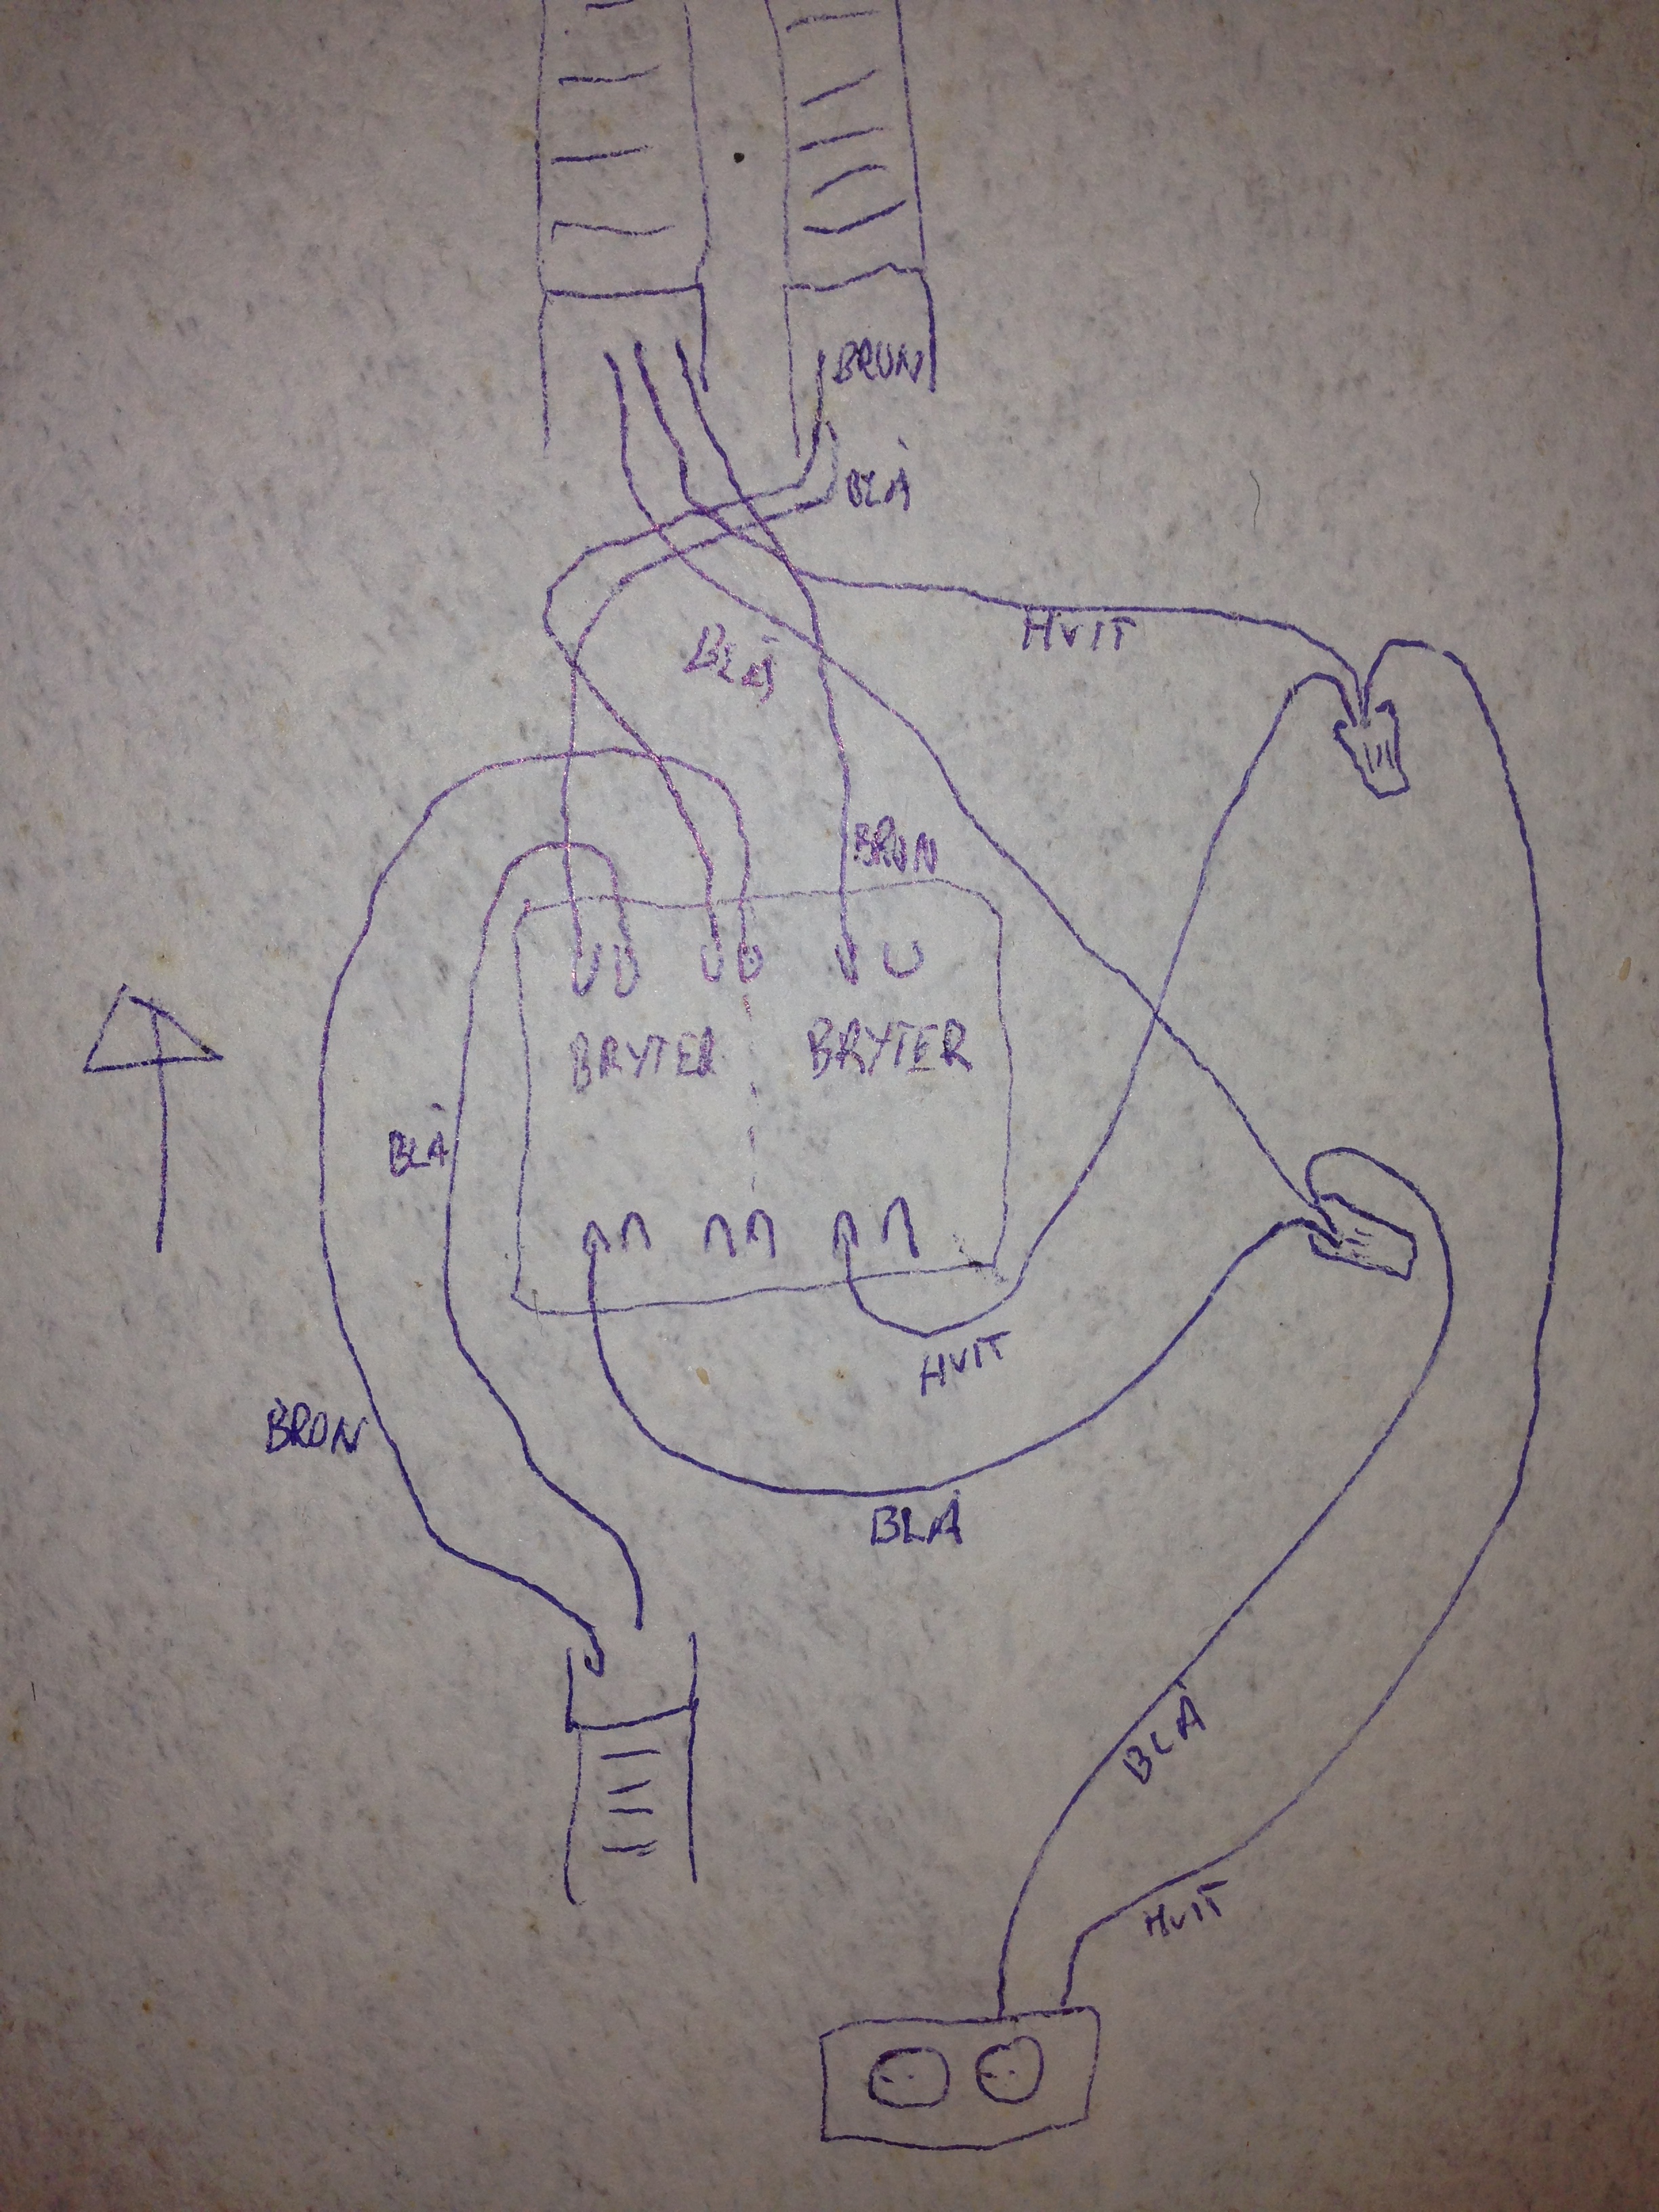 BRUN
BLÅ
HVIT
BLÅ
BRUN
BRYTER BRYTER
BLÅ
HVIT
BRUN
BLÅ
BLÅ
HVIT